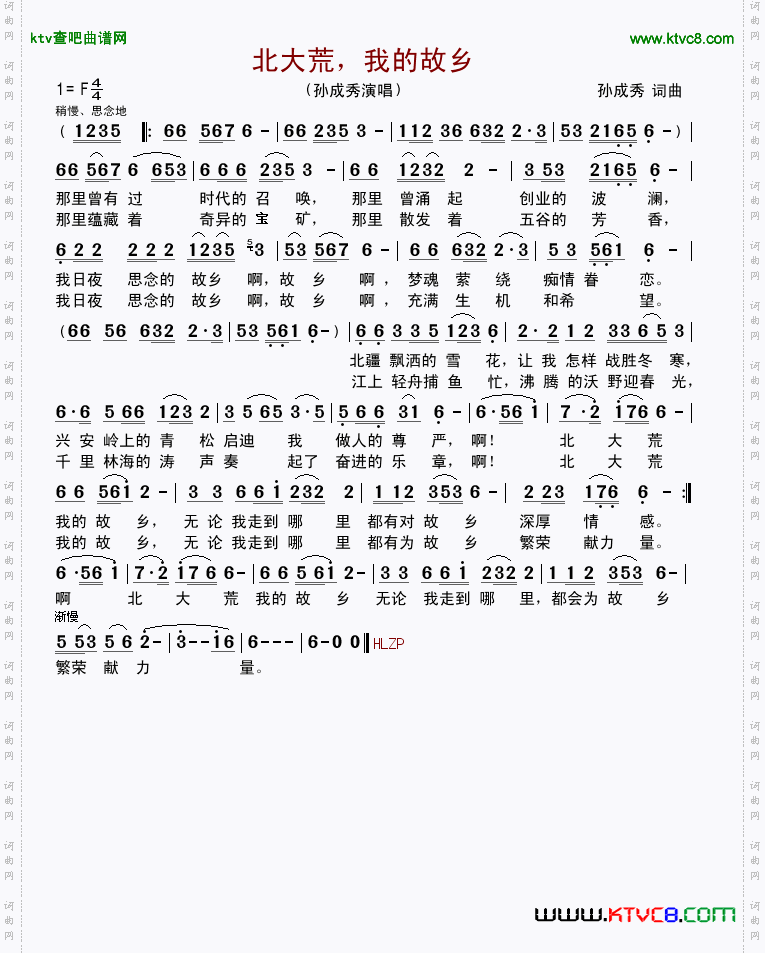 ktv查吧曲谱网
www.ktvc8.com
北大荒，我的故乡
1=F 4/4
（孙成秀演唱）
孙成秀 词曲
稍慢、思念地
（ 1235 ‖: 66 567 6 - | 66 235 3 - | 112 36 632 2·3 | 53 2165 6 - ）|
66 567 6 653 | 666 235 3 - | 66 1232 2 - | 3 53 2165 6 - |
那里曾有 过 时代的 召 唤， 那里 曾涌 起 创业的 波 澜，
那里蕴藏 着 奇异的 宝 矿， 那里 散发 着 五谷的 芳 香，
6 2 2 2 2 2 1235 5 3 | 53 567 6 - | 66 632 2·3 | 5 3 561 6 - |
我日夜 思念的 故乡 啊，故 乡 啊 ，梦魂 萦 绕 痴情 眷 恋。
我日夜 思念的 故乡 啊，故 乡 啊 ，充满 生 机 和希 望。
（66 56 632 2·3 | 53 561 6 - ）| 6 6 3 3 5 123 6 | 2· 2 1 2 33 6 5 3 |
北疆 飘洒的 雪 花，让 我 怎样 战胜冬 寒，
江上 轻舟捕 鱼 忙，沸 腾 的沃 野迎春 光，
6·6 5 66 123 2 | 3 5 65 3·5 | 5 6 6 31 6 - | 6·56 1 | 7 ·2 176 6 |
兴 安 岭上的 青 松 启迪 我 做人的 尊 严，啊！ 北 大 荒
千 里 林海的 涛 声 奏 起了 奋进的 乐 章，啊！ 北 大 荒
6 6 561 2 - | 3 3 6 6 1 232 2 | 1 12 353 6 - | 2 23 176 6 - :‖
我的 故 乡， 无 论 我走到 哪 里 都有对 故 乡 深厚 情 感。
我的 故 乡， 无 论 我走到 哪 里 都有为 故 乡 繁荣 献力 量。
6 ·56 1 | 7·2 176 6 - | 66 5 61 2 - | 3 3 66 1 232 2 | 1 1 2 353 6 - |
啊 北 大 荒 我的 故 乡 无论 我走到 哪 里，都会为 故 乡
渐慢
5 53 5 6 2 - | 3 - - 16 | 6 - - - | 6 - 0 0 ‖ HLZP
繁荣 献 力 量。
www.KTVC8.COM